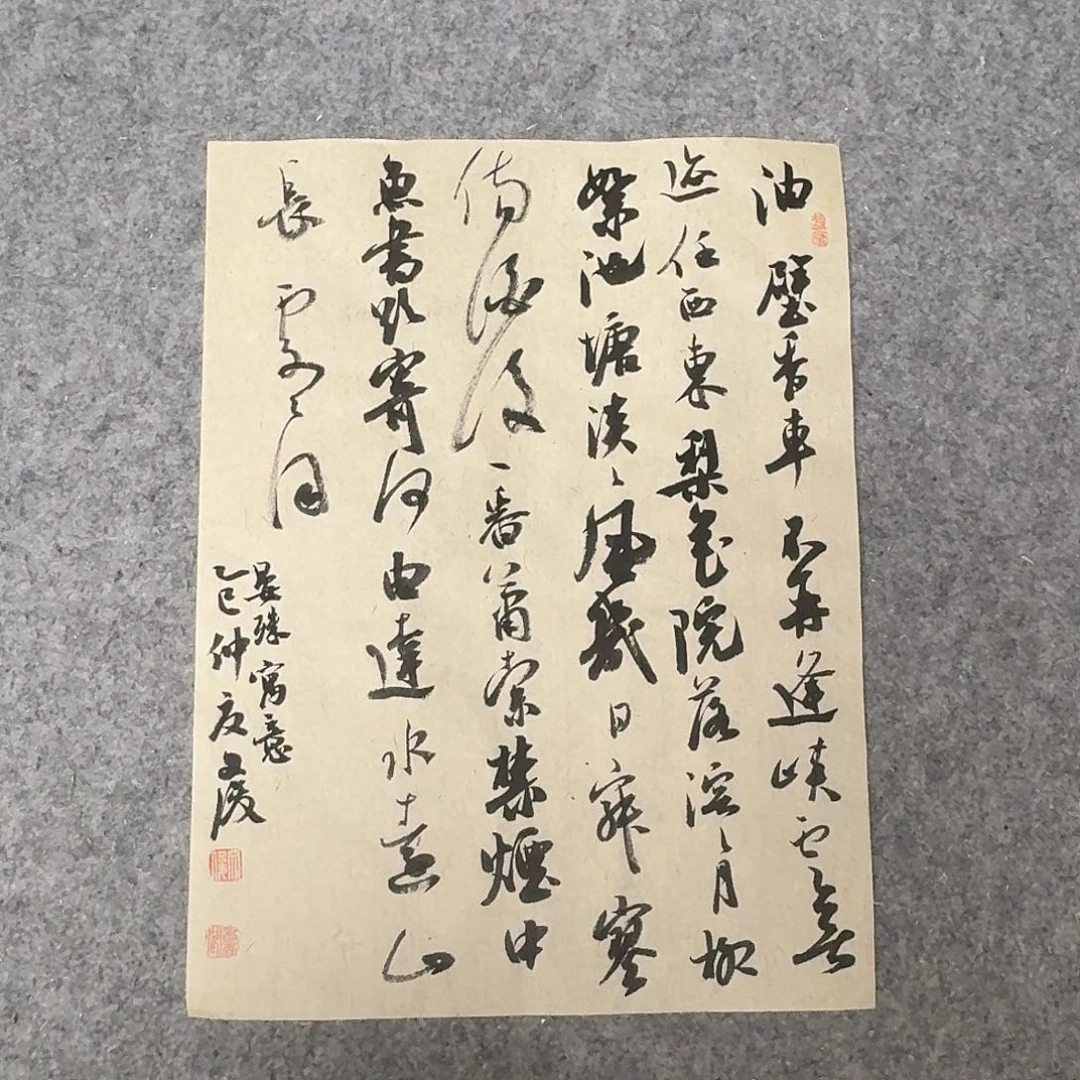 油壁香車不再逢峽云無
迹任西東梨花院落溶溶月柳
絮池塘淡淡風幾日寂寥
傷酒後一番蕭索禁煙中
魚書欲寄何由達水遠山
長處處同
晏殊寓意
乙巳仲夏文